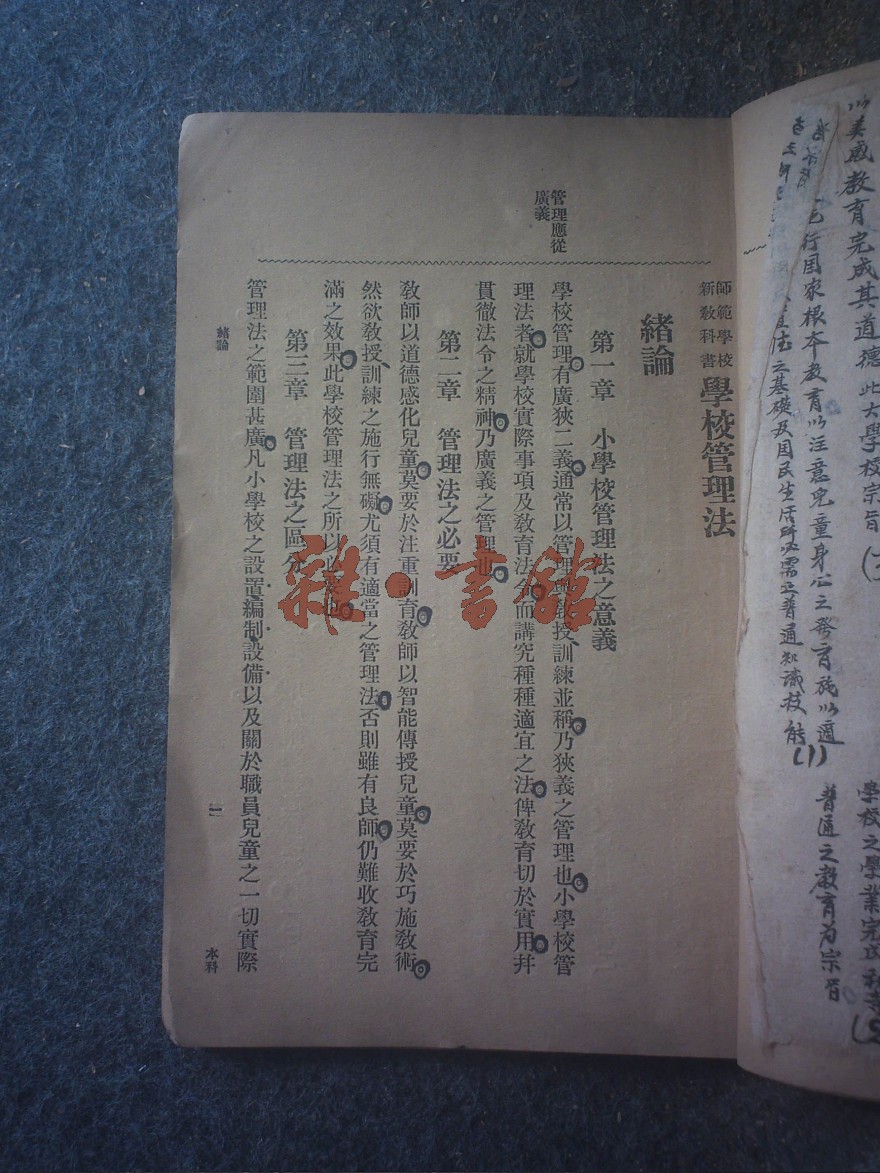 以美感教育完成其道德 此大學校宗旨
行国家根本教育以注意兒童身心之發育施以適
之基礎及国民生活所必需之普通知識技能(1)
學校之學業完
普通之教育为宗旨
師範學校
新教科書
學校管理法
緒論
第一章 小學校管理法之意義
管理應從
廣義
學校管理有廣狹二義通常以管理與教授訓練並稱乃狹義之管理也小學校管
理法者就學校實際事項及教育法令而講究種種適宜之法俾教育切於實用并
貫徹法令之精神乃廣義之管理也
第二章 管理法之必要
教師以道德感化兒童莫要於注重訓育教師以智能傳授兒童莫要於巧施教術
然欲教授訓練之施行無礙尤須有適當之管理法否則雖有良師仍難收教育完
滿之效果此學校管理法之所以必
第三章 管理法之區分
管理法之範圍甚廣凡小學校之設置編制設備以及關於職員兒童之一切實際
緒論
一
本科
雜·書館